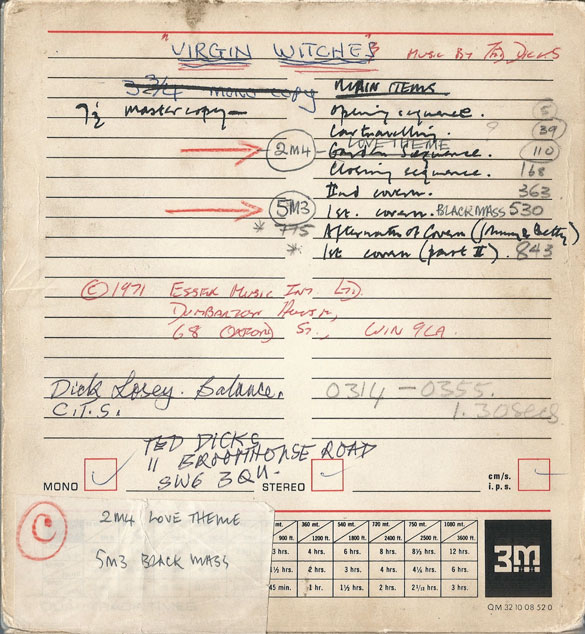 "VIRGIN WITCHES" MUSIC BY TED DICKS
3 3/4 mono copy
7½ master copy
MAIN ITEMS
Opening sequence. 5
Car travelling. 39
LOVE THEME
2M4 - Garden Sequence. 110
Closing sequence. 168
IInd coven. 363
5M3 1st. coven. BLACK MASS 530
* 775 Aftermath of Coven (Johnny & Betty)
* 1st coven (part II). 843
© 1971 ESSEX MUSIC INT. LTD.
DUMBARTON HOUSE,
68 OXFORD ST., W1N 9LA.
Dick Losey. Balance.
C.T.S.
0314 - 0355.
1.30secs
TED DICKS
11 BROOMHOUSE ROAD
SW6 3QU.
MONO STEREO cm/s.
i.p.s.
C
2M4 LOVE THEME
5M3 BLACK MASS
mt. 360 mt. 540 mt. 720 mt. 750 mt. 1080 mt.
900 ft. 1200 ft. 1800 ft. 2400 ft. 2500 ft. 3600 ft.
3 hrs. 4 hrs. 6 hrs. 8 hrs. 8⅓ hrs. 12 hrs.
1½ hrs. 2 hrs. 3 hrs. 4 hrs. 4⅙ hrs. 6 hrs.
45 min. 1 hr. 1½ hrs. 2 hrs. 2 1/12 hrs. 3 hrs.
3M
QM 32 10 08 52 0